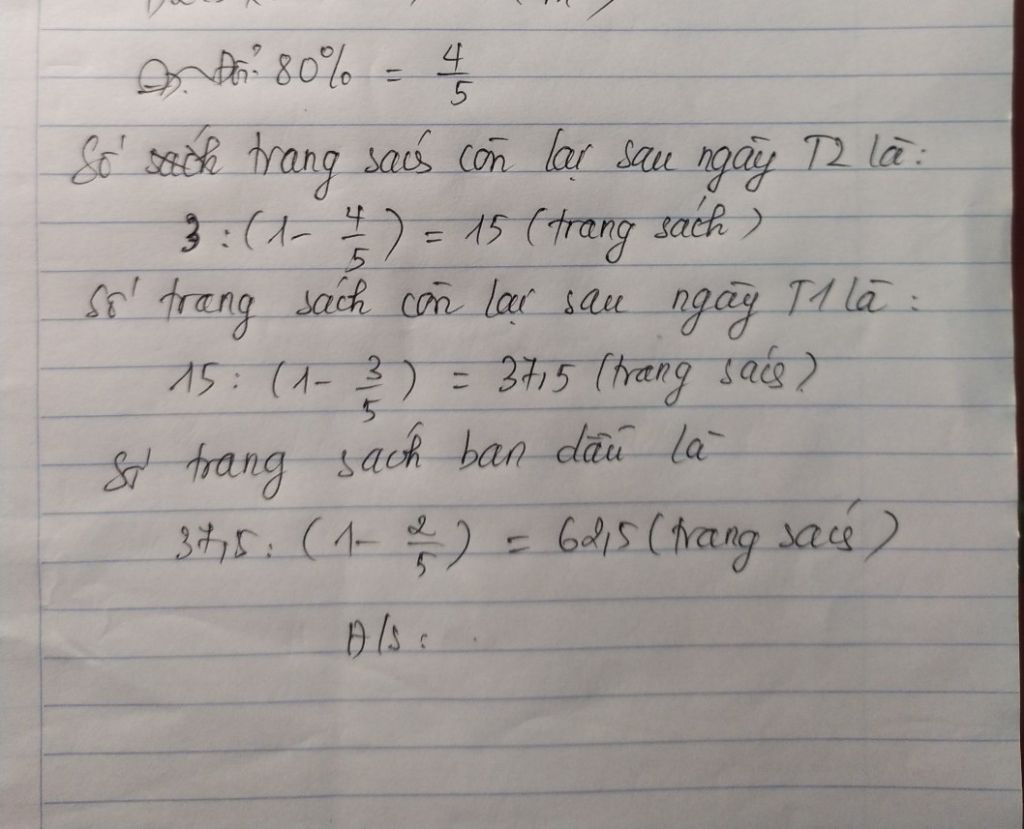 Đổi: 80% = 4/5
Số trang sách còn lại sau ngày T2 là:
3 : (1 - 4/5) = 15 (trang sách)
Số trang sách còn lại sau ngày T1 là:
15 : (1 - 3/5) = 37,5 (trang sách)
Số trang sách ban đầu là
37,5 : (1 - 2/5) = 62,5 (trang sách)
Đ/S :